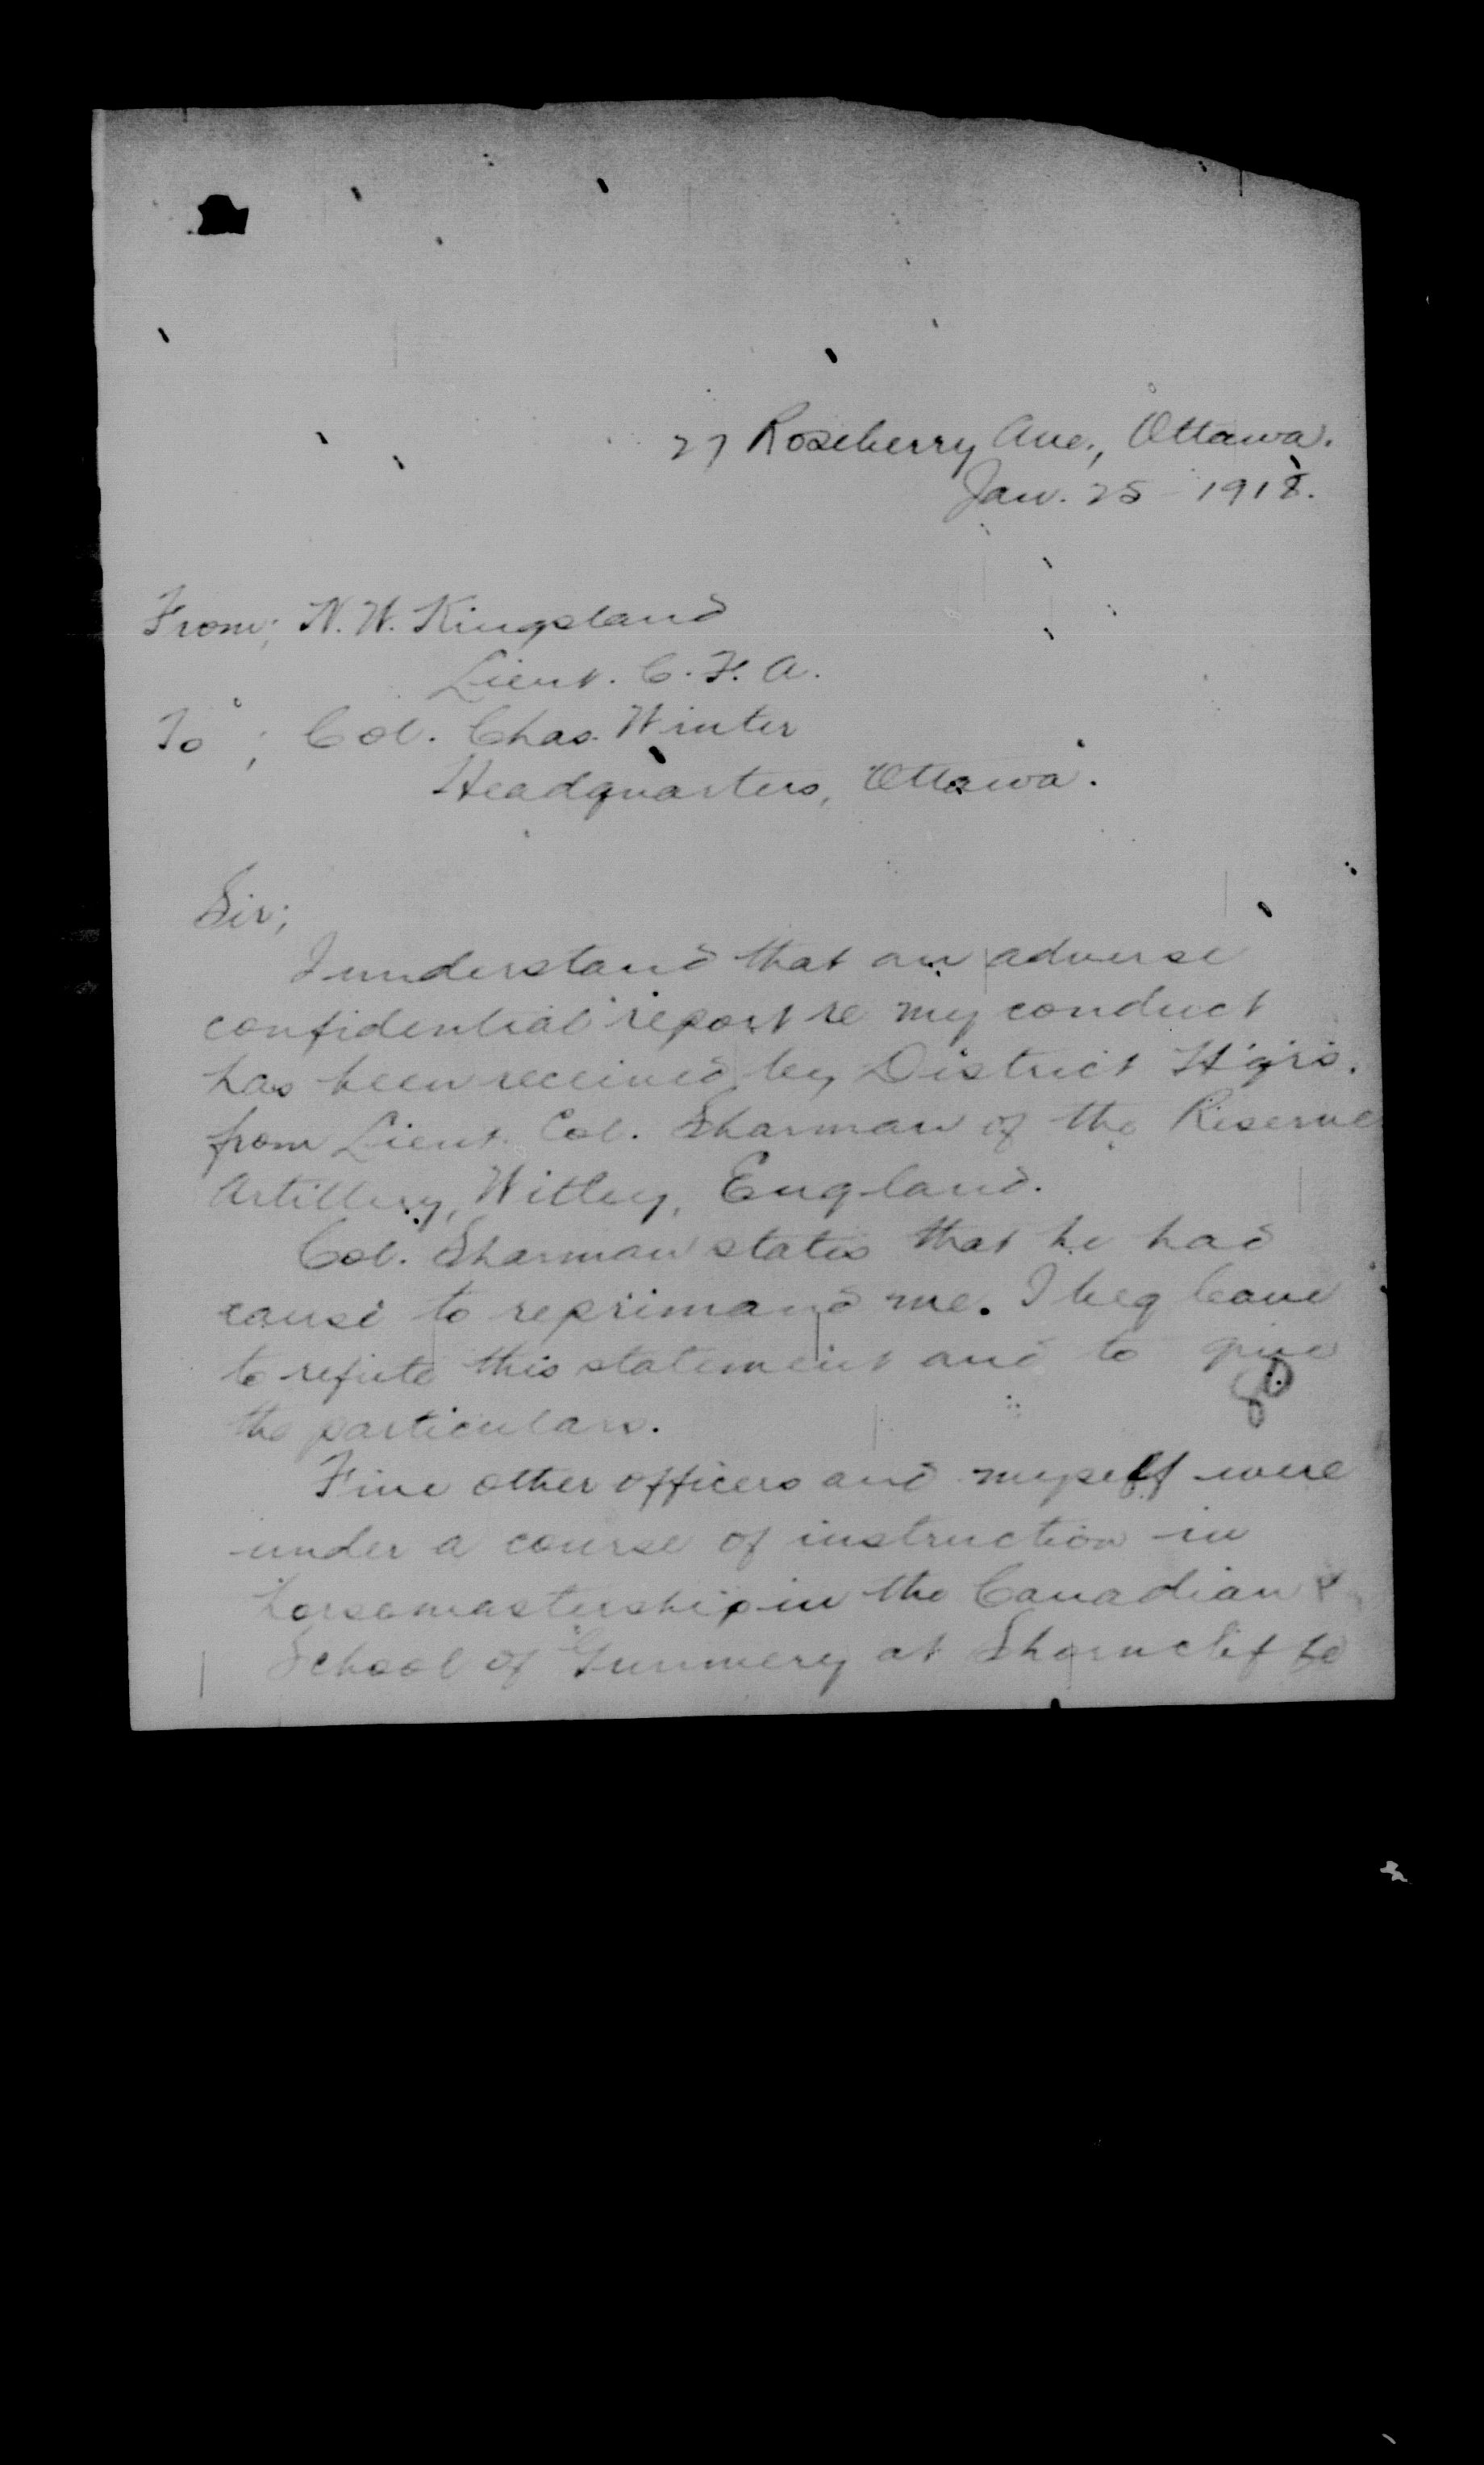 27 Roseberry Ave., Ottawa.
Jan. 25 - 1918.
From; N. W. Kingsland
Lieut. C. F. A.
To ; Col. Chas. Winter
Headquarters, Ottawa.
Sir;
I understand that an adverse
confidential report re my conduct
has been received by District H'q'rs.
from Lieut. Col. Sharman of the Reserve
Artillery, Witley, England.
Col. Sharman states that he had
cause to reprimand me. I beg leave
to refute this statement and to give
the particulars.
Five other officers and myself were
under a course of instruction in
horsemastership in the Canadian
School of Gunnery at Shorncliffe